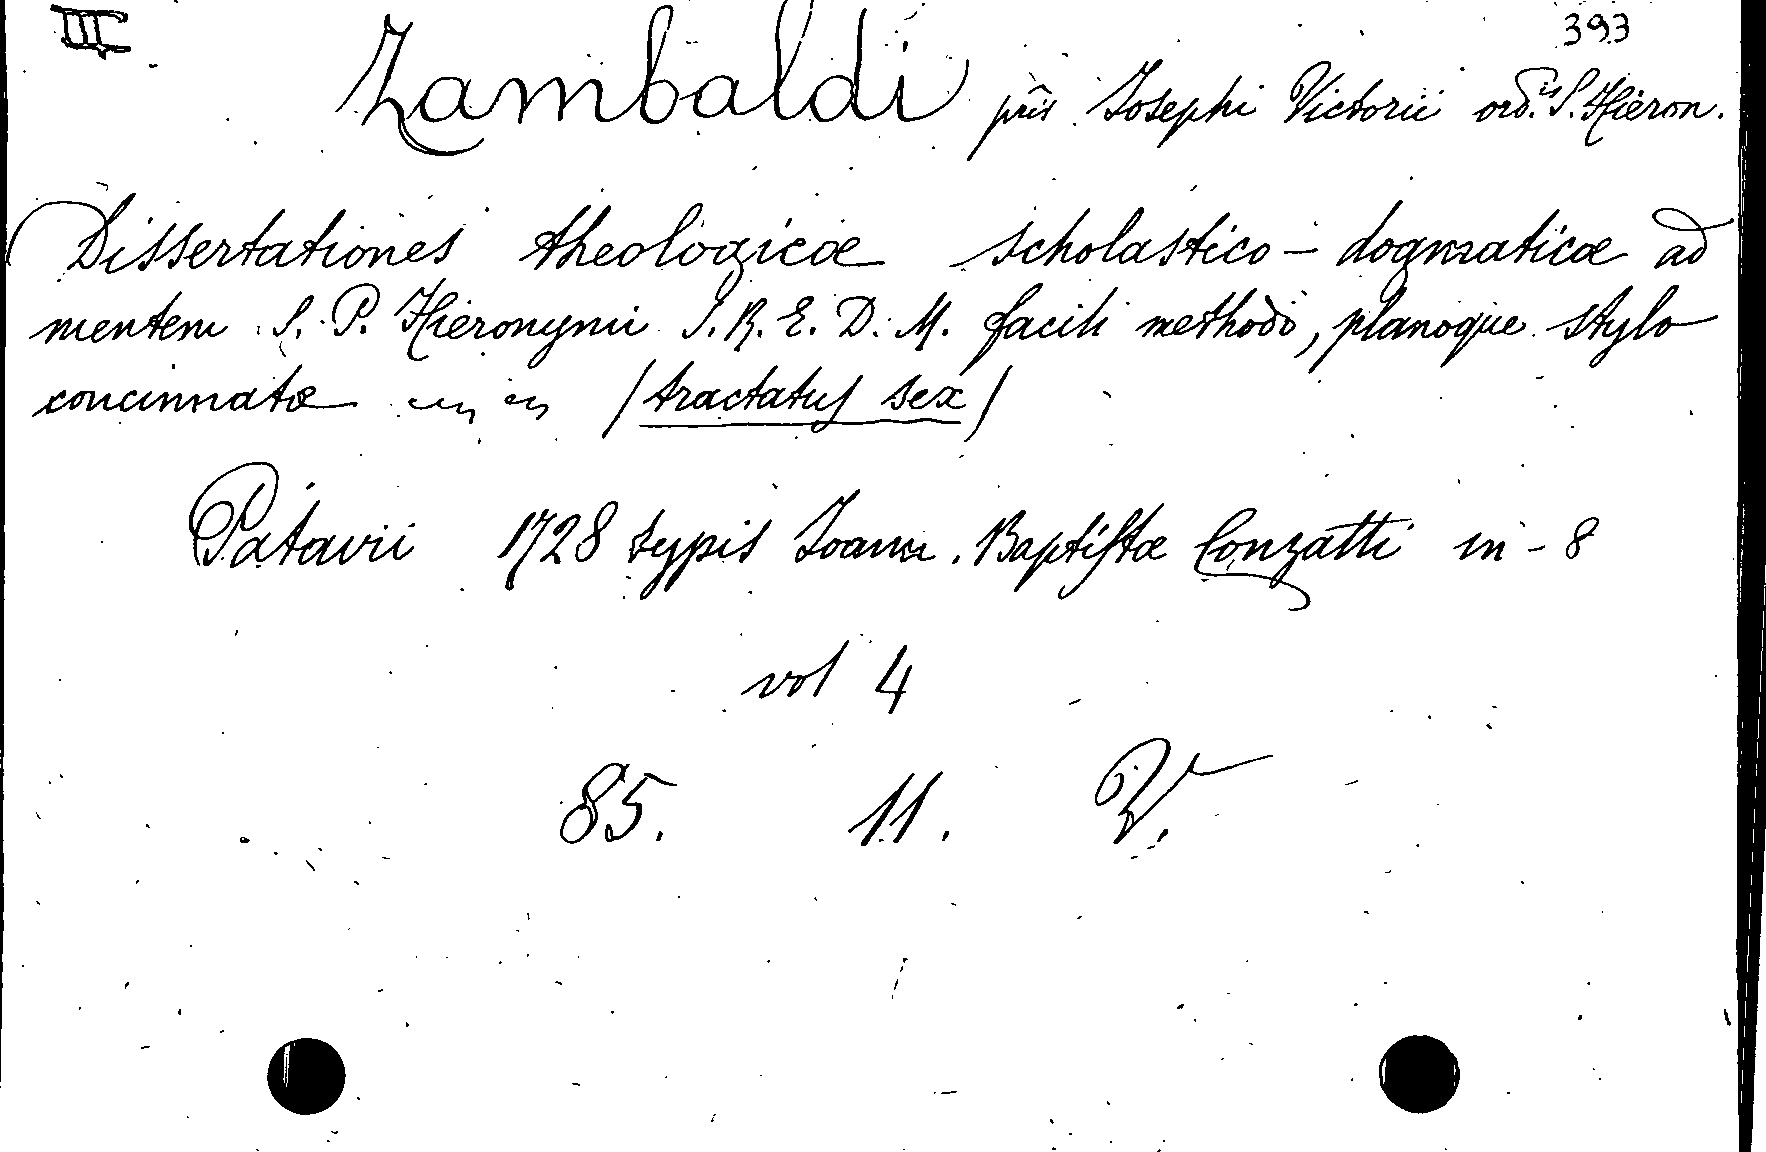 III 393
Zambaldi pris Josephi Victorii ord.is S. Hieron.
Dissertationes theologicæ scholastico - dogmaticæ ad
mentem S. P. Hieronymi S. R. E. D. M. facili methodo, planoque stylo
concinnatæ (tractatus sex)
Patavii 1728 typis Joann. Baptistæ Conzatti in - 8
vol 4
85. 11. V.